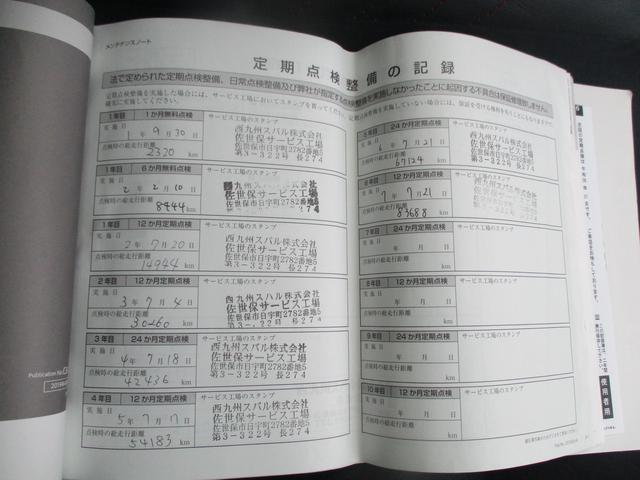 メンテナンスノート
定期点検整備の記録
法で定められた定期点検整備、日常点検整備及び弊社が指定する点検整備を実施しなかったことに起因する不具合は保証修理致しません。
定期点検整備を実施した場合には、サービス工場においてスタンプを貰ってください。
確実に実施してください。
1年目 1か月無料点検 サービス工場のスタンプ
実施日 1年 9月 30日
点検時の総走行距離 2330 km
西九州スバル株式会社
佐世保サービス工場
佐世保市日宇町2782番地5
第3-322号 長274
1年目 6か月無料点検 サービス工場のスタンプ
実施日 2年 2月 10日
点検時の総走行距離 8444 km
西九州スバル株式会社
佐世保サービス工場
佐世保市日宇町2782番地5
第3-322号 長274
1年目 12か月定期点検 サービス工場のスタンプ
実施日 2年 7月 20日
点検時の総走行距離 14944 km
西九州スバル株式会社
佐世保サービス工場
佐世保市日宇町2782番地5
第3-322号 長274
2年目 12か月定期点検 サービス工場のスタンプ
実施日 3年 7月 4日
点検時の総走行距離 km
西九州スバル株式会社
佐世保サービス工場
佐世保市日宇町2782番地5
第3-322号 長274
3年目 24か月定期点検 サービス工場のスタンプ
実施日 4年 7月 18日
点検時の総走行距離 42436 km
西九州スバル株式会社
佐世保サービス工場
佐世保市日宇町2782番地5
第3-322号 長274
4年目 12か月定期点検 サービス工場のスタンプ
実施日 5年 7月 17日
点検時の総走行距離 54183 km
西九州スバル株式会社
佐世保サービス工場
佐世保市日宇町2782番地5
第3-322号 長274
5年目 24か月定期点検 サービス工場のスタンプ
実施日 6年 7月 21日
点検時の総走行距離 67124 km
西九州スバル株式会社
佐世保サービス工場
佐世保市日宇町2782番地5
第3-322号 長274
6年目 12か月定期点検 サービス工場のスタンプ
実施日 7年 7月 21日
点検時の総走行距離 83688 km
西九州スバル株式会社
佐世保サービス工場
佐世保市日宇町2782番地5
第3-322号 長274
7年目 24か月定期点検 サービス工場のスタンプ
実施日 年 月 日
点検時の総走行距離 km
8年目 12か月定期点検 サービス工場のスタンプ
実施日 年 月 日
点検時の総走行距離 km
9年目 24か月定期点検 サービス工場のスタンプ
実施日 年 月 日
点検時の総走行距離 km
10年目 12か月定期点検 サービス工場のスタンプ
実施日 年 月 日
点検時の総走行距離 km
使用者用